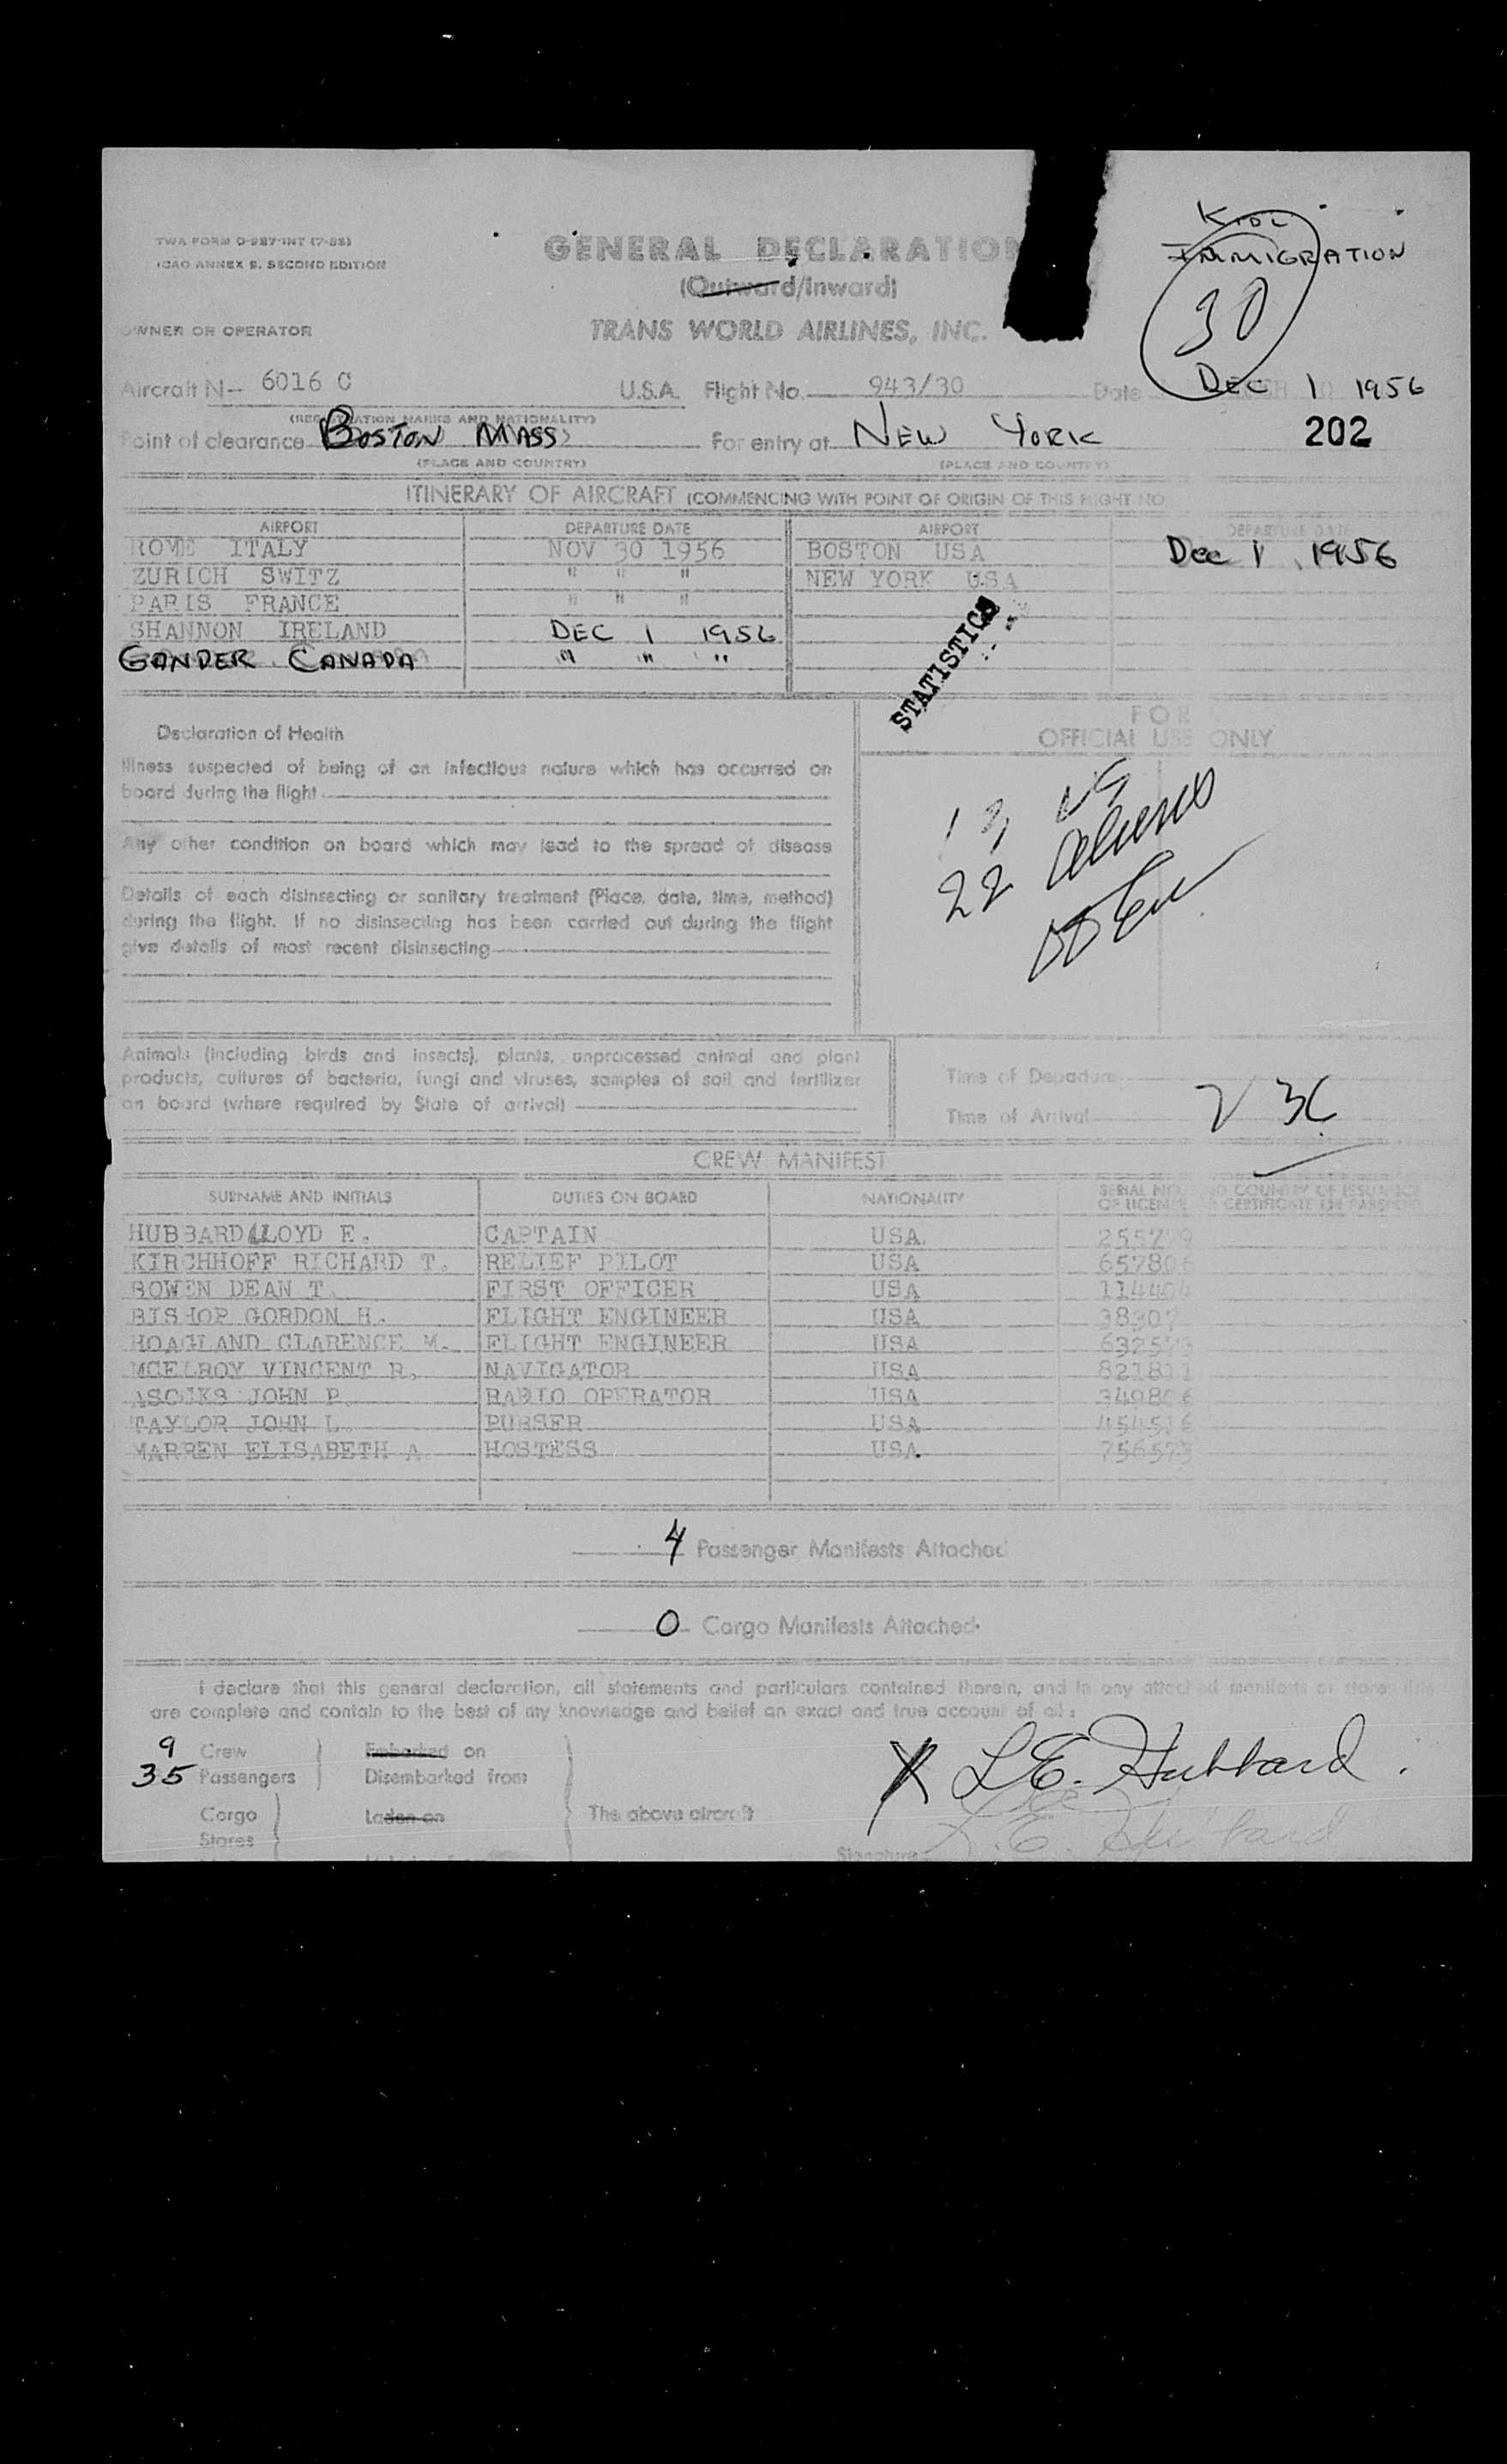 TWA FORM O-927-INT (7-55)
ICAO ANNEX 9. SECOND EDITION
GENERAL DECLARATION
(Outward/Inward)
IMMIGRATION
30
OWNER OR OPERATOR
TRANS WORLD AIRLINES, INC.
Aircraft N- 6016 C U.S.A. Flight No. 943/30 Date DEC 1 1956
(REGISTRATION MARKS AND NATIONALITY)
Point of clearance BOSTON MASS For entry at NEW YORK 202
(PLACE AND COUNTRY) (PLACE AND COUNTRY)
ITINERARY OF AIRCRAFT (COMMENCING WITH POINT OF ORIGIN OF THIS FLIGHT NO
AIRPORT DEPARTURE DATE AIRPORT DEPARTURE DATE
ROME ITALY NOV 30 1956 BOSTON USA Dec 1, 1956
ZURICH SWITZ " " " NEW YORK USA
PARIS FRANCE " " "
SHANNON IRELAND DEC 1 1956
GANDER CANADA " " "
STATISTICS
FOR
OFFICIAL USE ONLY
Declaration of Health
Illness suspected of being of an infectious nature which has occurred on
board during the flight
Any other condition on board which may lead to the spread of disease
Details of each disinsecting or sanitary treatment (Place, date, time, method)
during the flight. If no disinsecting has been carried out during the flight
give details of most recent disinsecting
13
22 aliens
Animals (including birds and insects), plants, unprocessed animal and plant
products, cultures of bacteria, fungi and viruses, samples of soil and fertilizer
on board (where required by State of arrival)
Time of Departure
Time of Arrival
CREW MANIFEST
SURNAME AND INITIALS DUTIES ON BOARD NATIONALITY SERIAL NO. AND COUNTRY OF ISSUANCE
OF LICENSE CERTIFICATE OR PASSPORT
HUBBARD LLOYD E. CAPTAIN USA.
KIRCHHOFF RICHARD T. RELIEF PILOT USA
BOWEN DEAN T. FIRST OFFICER USA
BISHOP GORDON H. FLIGHT ENGINEER USA
HOAGLAND CLARENCE M. FLIGHT ENGINEER USA
MCELROY VINCENT R. NAVIGATOR USA 821811
JOHN P. RADIO OPERATOR USA
TAYLOR JOHN L. PURSER USA
MARREN ELISABETH A. HOSTESS USA.
4 Passenger Manifests Attached
0 Cargo Manifests Attached
I declare that this general declaration, all statements and particulars contained therein, and in any attached manifests or stores list
are complete and contain to the best of my knowledge and belief an exact and true account of all:
9 Crew Embarked on
35 Passengers Disembarked from
X L E. Hubbard.
Cargo Laden on The above aircraft
Stores
L. E. Hubbard
Signature